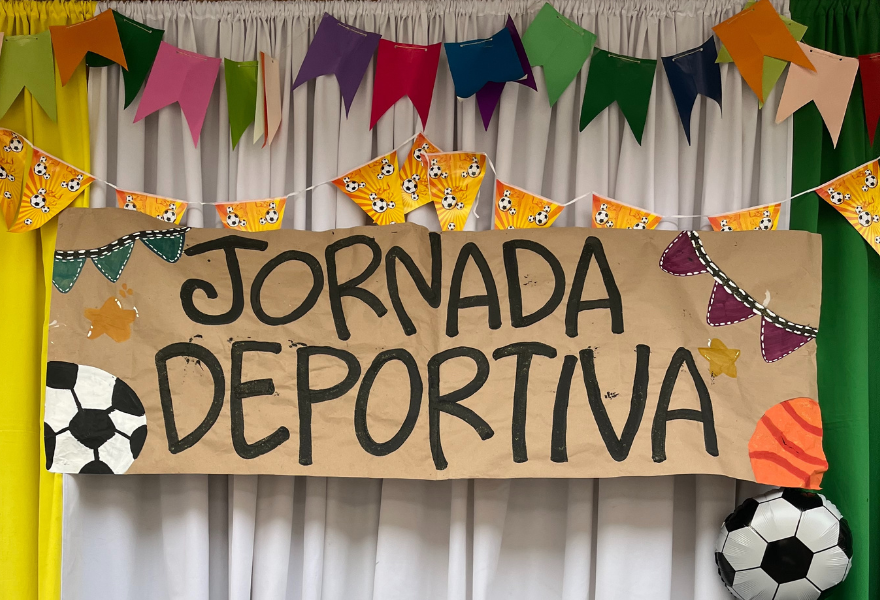 JORNADA
DEPORTIVA